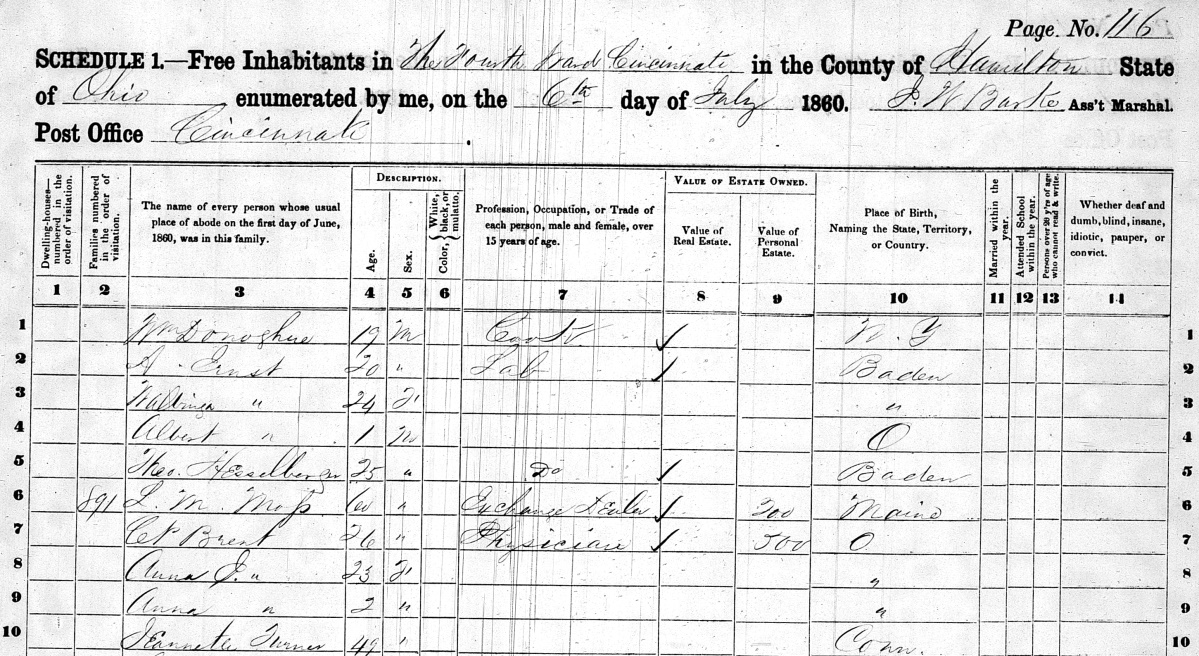 Page No. 116
SCHEDULE 1.—Free Inhabitants in The Fourth Ward Cincinnati in the County of Hamilton State
of Ohio enumerated by me, on the 6th day of July 1860. Ass't Marshal.
Post Office Cincinnati.
Dwelling-houses—numbered in the order of visitation.
Families numbered in the order of visitation.
The name of every person whose usual place of abode on the first day of June, 1860, was in this family.
DESCRIPTION.
Age.
Sex.
Color, { White, black, or mulatto.
Profession, Occupation, or Trade of each person, male and female, over 15 years of age.
VALUE OF ESTATE OWNED.
Value of Real Estate.
Value of Personal Estate.
Place of Birth, Naming the State, Territory, or Country.
Married within the year.
Attended School within the year.
Persons over 20 y'rs of age who cannot read & write.
Whether deaf and dumb, blind, insane, idiotic, pauper, or convict.
1 2 3 4 5 6 7 8 9 10 11 12 13 14
1 Wm Donoghue 19 M ✓ N. Y 1
2 A. Ernst 20 " Lab ✓ Baden 2
3 " 24 F " 3
4 Albert " 1 M O 4
5 Theo. Hesselberger 25 " Do ✓ Baden 5
6 891 L. M. Moss 60 " Exchange Dealer ✓ 200 Maine 6
7 Brent 26 " Physician ✓ 500 O 7
8 Anna J. " 23 F " 8
9 Anna " 2 " " 9
10 Jeannette Turner 49 " Conn. 10